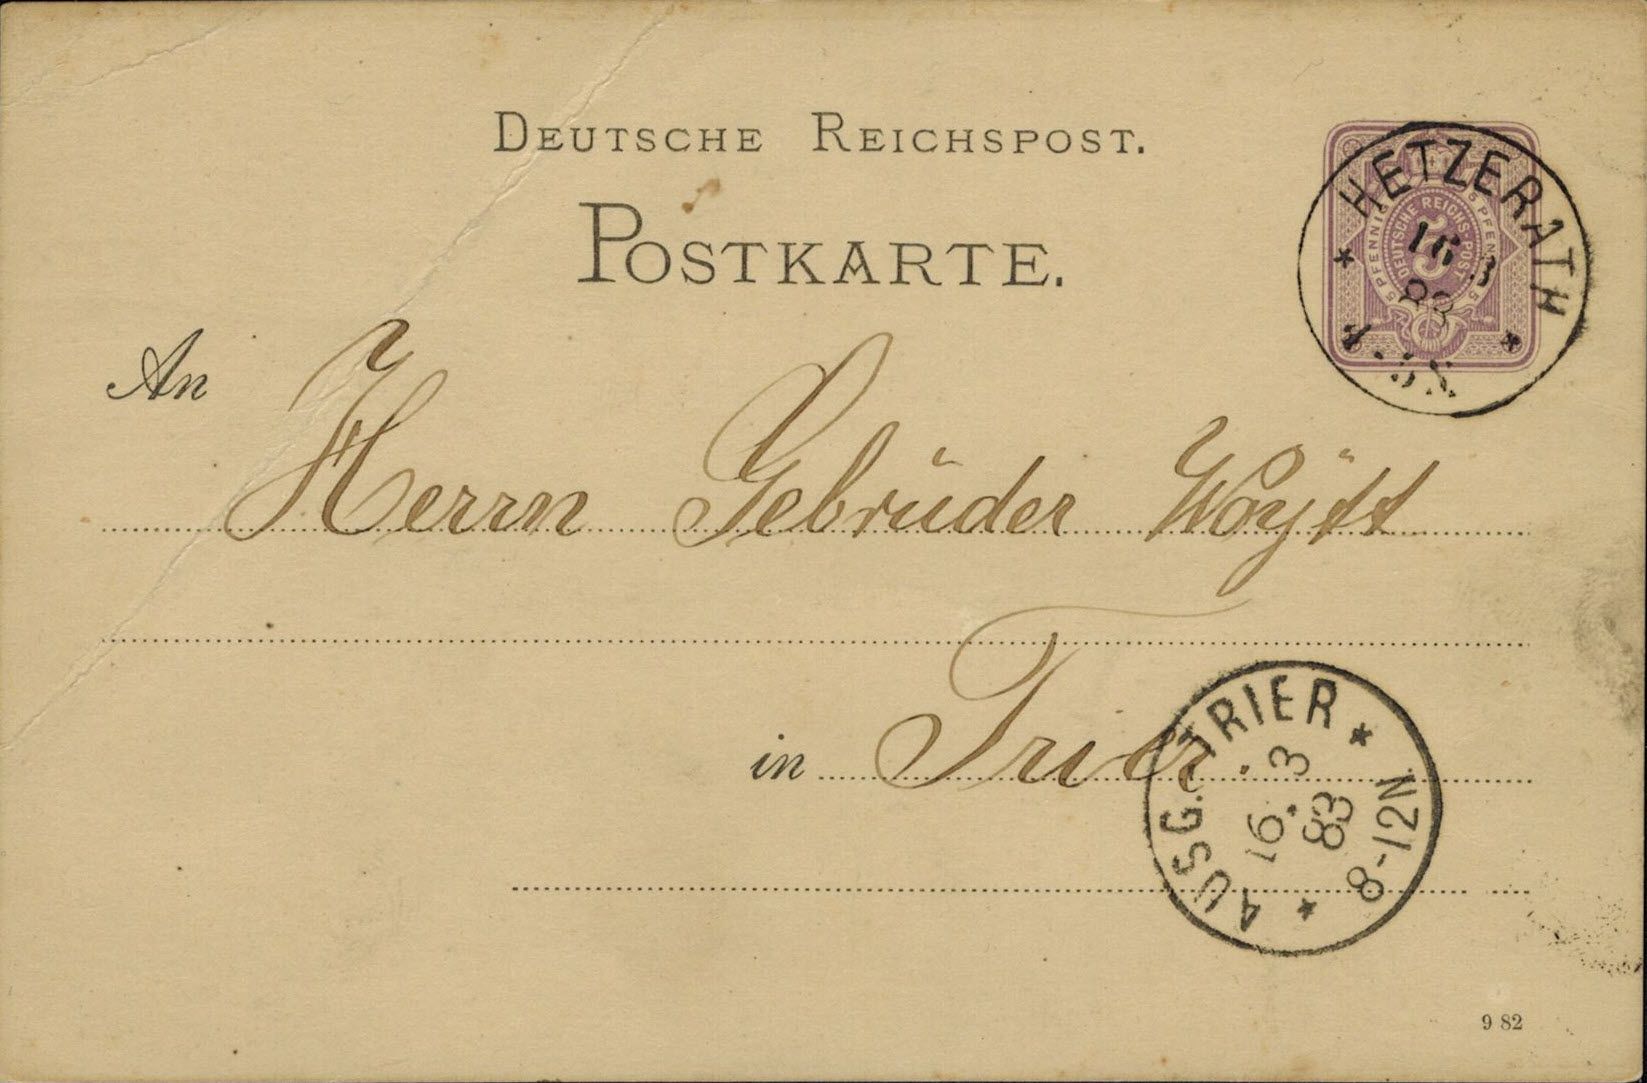 DEUTSCHE REICHSPOST.
POSTKARTE.
5 PFENNIG
DEUTSCHE REICHS-POST
5
HETZERATH
16 3
83
An Herrn Gebrüder Woÿtt
in Trier.
AUSG. TRIER
16. 3
83
8-12N.
9 82